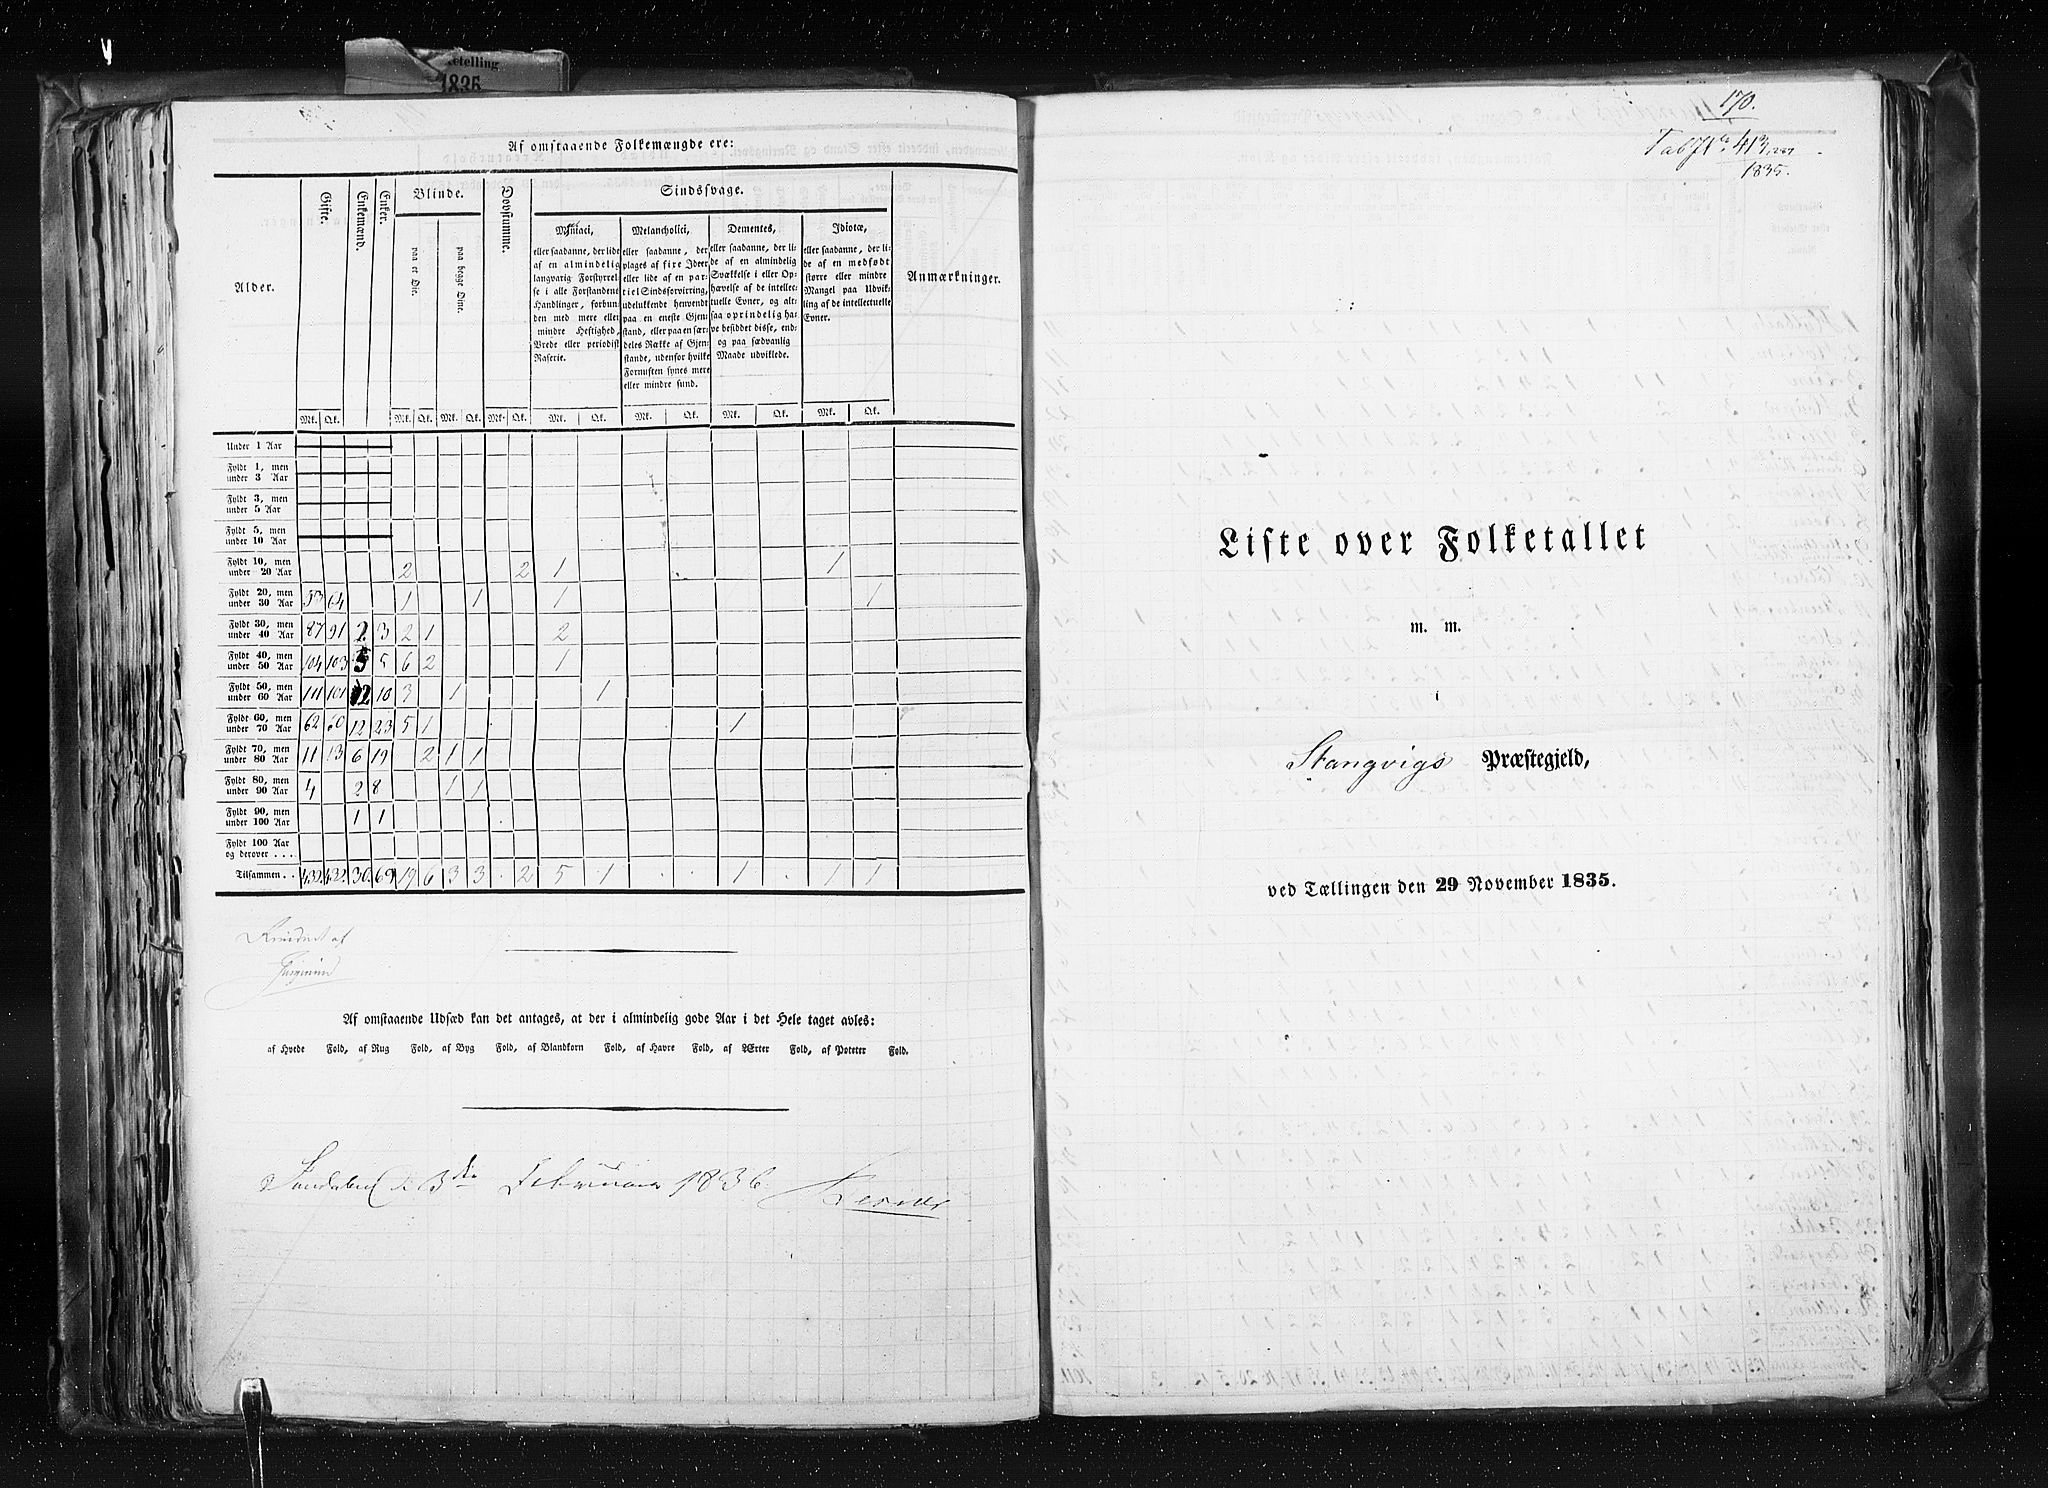 ketelling
1835
Af omstaaende Folkemængde ere:
Alder.
Gifte.
Enkemænd.
Enker.
Blinde.
paa et Øie.
paa begge Øine.
Døvstumme.
Sindssvage.
Maniaci,
eller saadanne, der lide
af en almindelig
langvarig Forstyrrel-
se i alle Forstandens
Handlinger, forbun-
den med mere eller
mindre Heftighed,
Vrede eller periodisk
Raserie.
Melancholici,
eller saadanne, der
plages af fixe Ideer
eller lide af en par-
tiel Sindsforvirring,
udelukkende henvendt
paa en eneste Gjen-
stand, eller paa en sær-
deles Række af Gjen-
stande, udenfor hvilke
Fornuften synes mere
eller mindre sund.
Dementes,
eller saadanne, der li-
de af en almindelig
Svækkelse i eller Op-
hævelse af de intellec-
tuelle Evner, og alt-
saa oprindelig ha-
ve besiddet disse, end-
og paa sædvanlig
Maade udviklede.
Idiotæ,
eller saadanne, der li-
de af en medfødt
større eller mindre
Mangel paa Udvik-
ling af de intellectuelle
Evner.
Anmærkninger.
Mk. Qk. Mk. Qk. Mk. Qk. Mk. Qk. Mk. Qk. Mk. Qk. Mk. Qk. Mk. Qk.
Under 1 Aar
Fyldt 1, men
under 3 Aar
Fyldt 3, men
under 5 Aar
Fyldt 5, men
under 10 Aar
Fyldt 10, men
under 20 Aar 2 2 1 1
Fyldt 20, men
under 30 Aar 53 64 1 1 1 1
Fyldt 30, men
under 40 Aar 87 91 2 3 2 1 2
Fyldt 40, men
under 50 Aar 104 103 5 5 6 2 1
Fyldt 50, men
under 60 Aar 111 101 2 10 3 1 1
Fyldt 60, men
under 70 Aar 62 60 12 23 5 1 1
Fyldt 70, men
under 80 Aar 11 13 6 19 2 1 1
Fyldt 80, men
under 90 Aar 4 2 8 1 1
Fyldt 90, men
under 100 Aar 1 1
Fyldt 100 Aar
og derover . . .
Tilsammen . . 432 432 30 69 19 6 3 3 . 2 5 1 . . 1 . 1 1
Revideret af
Af omstaaende Udsæd kan det antages, at der i almindelig gode Aar i det Hele taget avles:
af Hvede Fold, af Rug Fold, af Byg Fold, af Blandkorn Fold, af Havre Fold, af Ærter Fold, af Poteter Fold.
3die Februar 1836
170.
1835.
Liste over Folketallet
m. m.
i
Stangvigs Præstegjeld,
ved Tællingen den 29 November 1835.